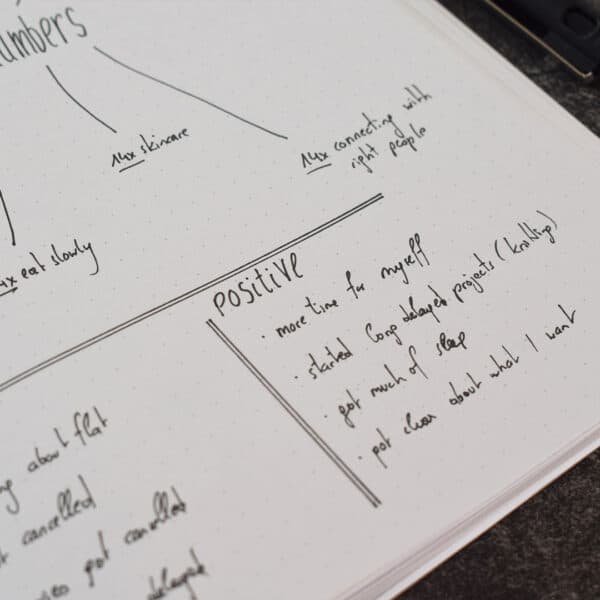 umbers
14x skincare
14x connecting with
right people
4x eat slowly
positive
· more time for myself
· started long delayed projects (knitting)
· got much of sleep
· got clear about what I want
about flat
cancelled
got cancelled
delayed